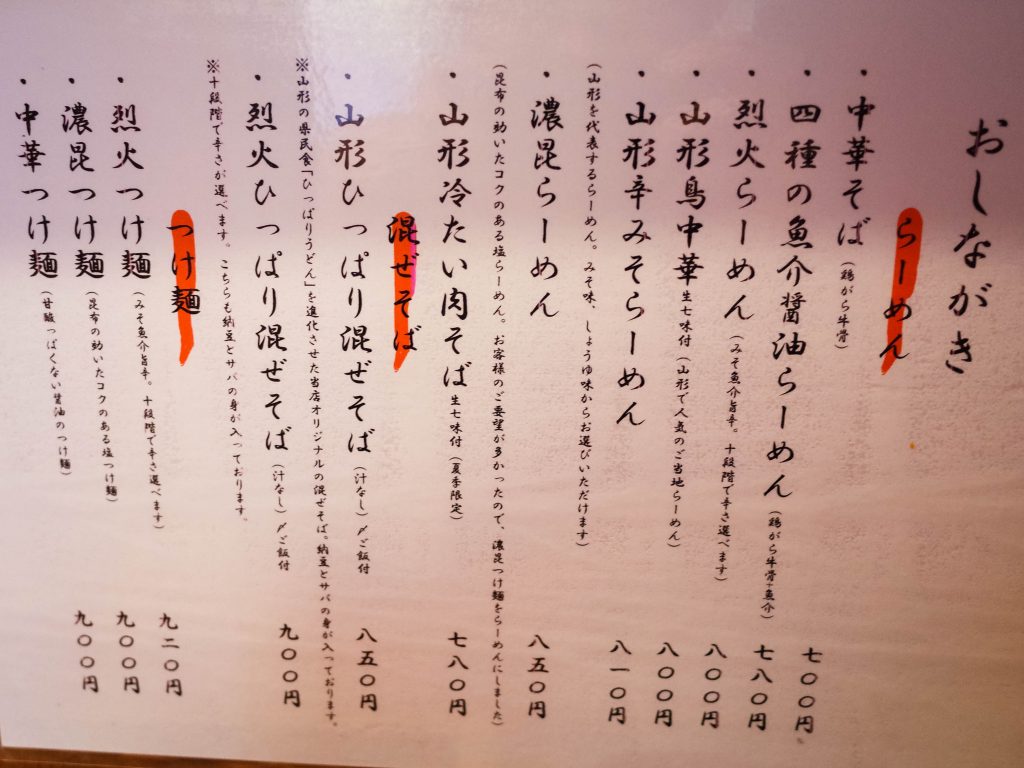 おしながき
らーめん
・中華そば（鶏がら牛骨） 七００円
・四種の魚介醤油らーめん（鶏がら牛骨＋魚介） 七八０円
・烈火らーめん（みそ魚介旨辛。十段階で辛さ選べます） 八００円
・山形鳥中華 生七味付（山形で人気のご当地らーめん） 八００円
・山形辛みそらーめん 八一０円
（山形を代表するらーめん。みそ味、しょうゆ味からお選びいただけます）
・濃昆らーめん 八五０円
（昆布の効いたコクのある塩らーめん。お客様のご要望が多かったので、濃昆つけ麺をらーめんにしました）
・山形冷たい肉そば 生七味付（夏季限定） 七八０円
混ぜそば
・山形ひっぱり混ぜそば（汁なし）〆ご飯付 八五０円
※山形の県民食「ひっぱりうどん」を進化させた当店オリジナルの混ぜそば。納豆とサバの身が入っております。
・烈火ひっぱり混ぜそば（汁なし）〆ご飯付 九００円
※十段階で辛さが選べます。こちらも納豆とサバの身が入っております。
つけ麺
・烈火つけ麺（みそ魚介旨辛。十段階で辛さ選べます） 九二０円
・濃昆つけ麺（昆布の効いたコクのある塩つけ麺） 九００円
・中華つけ麺（甘酸っぱくない醤油のつけ麺） 九００円